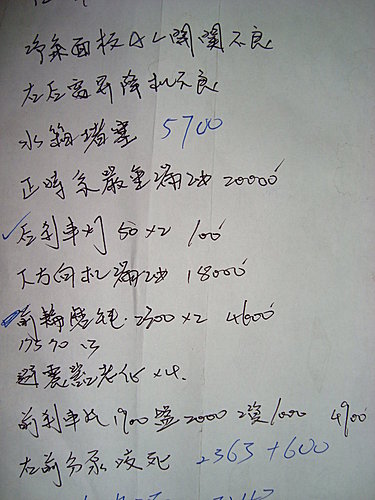 冷氣面板AC開關不良
左后窗昇降机不良
水箱堵塞 5700
正時系嚴重漏油 20000
后刹車灯 50×2 100
方向机漏油 18000
前輪 2300×2 4600
175 70 13
避震老化×4.
前刹車 1900 盤2000 1000 4900
左前分泵咬死 2363+600